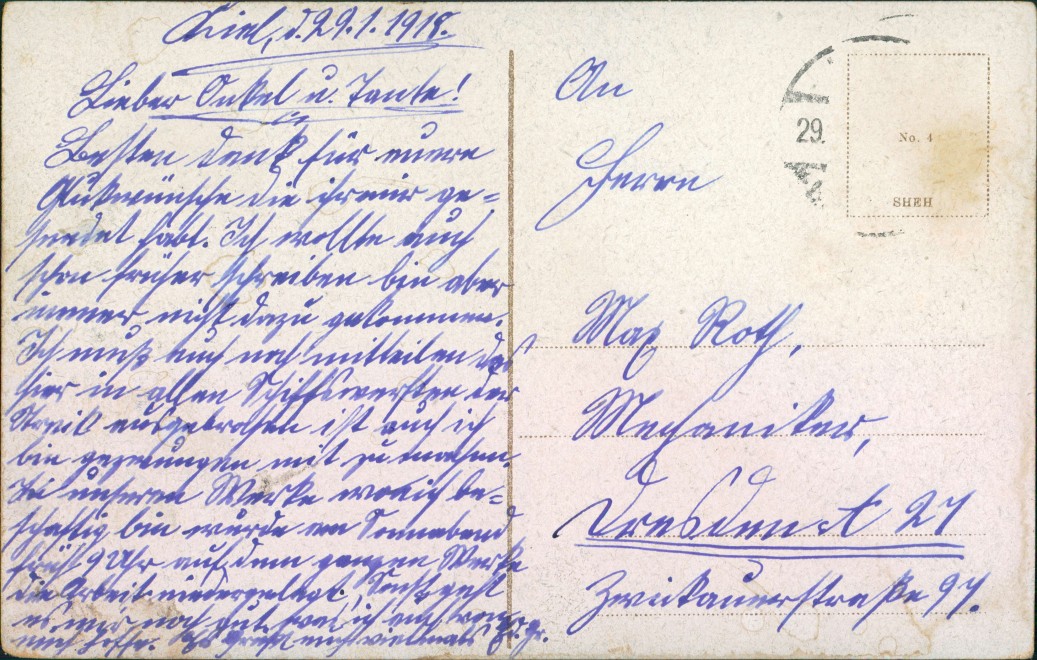 Kiel, d. 29.1.1918.
Lieber Onkel u. Tante!
Besten Dank für euere
Glükwünsche die ihr mir ge=
sendet habt. Ich wollte auch
schon früher schreiben bin aber
immer nicht dazu gekommen.
Ich muß euch noch mitteilen das
hier in allen Schiffswerften der
Streik ausgebrochen ist auch ich
bin gezwungen mit zu machen.
In unseren Werke wo ich be=
schäftig bin wurde am Sonnabend
früh 9 Uhr auf dem ganzen Werke
die Arbeit niedergelegt. Sonst geht
es mir noch gut, was ich auch von
euch hoffe. Es grüßt euch vielmals
An
Herrn
Max Roth,
Mechaniker,
Dresden A 27
Zwickauerstraße 94.
29.
No. 4
SHEH